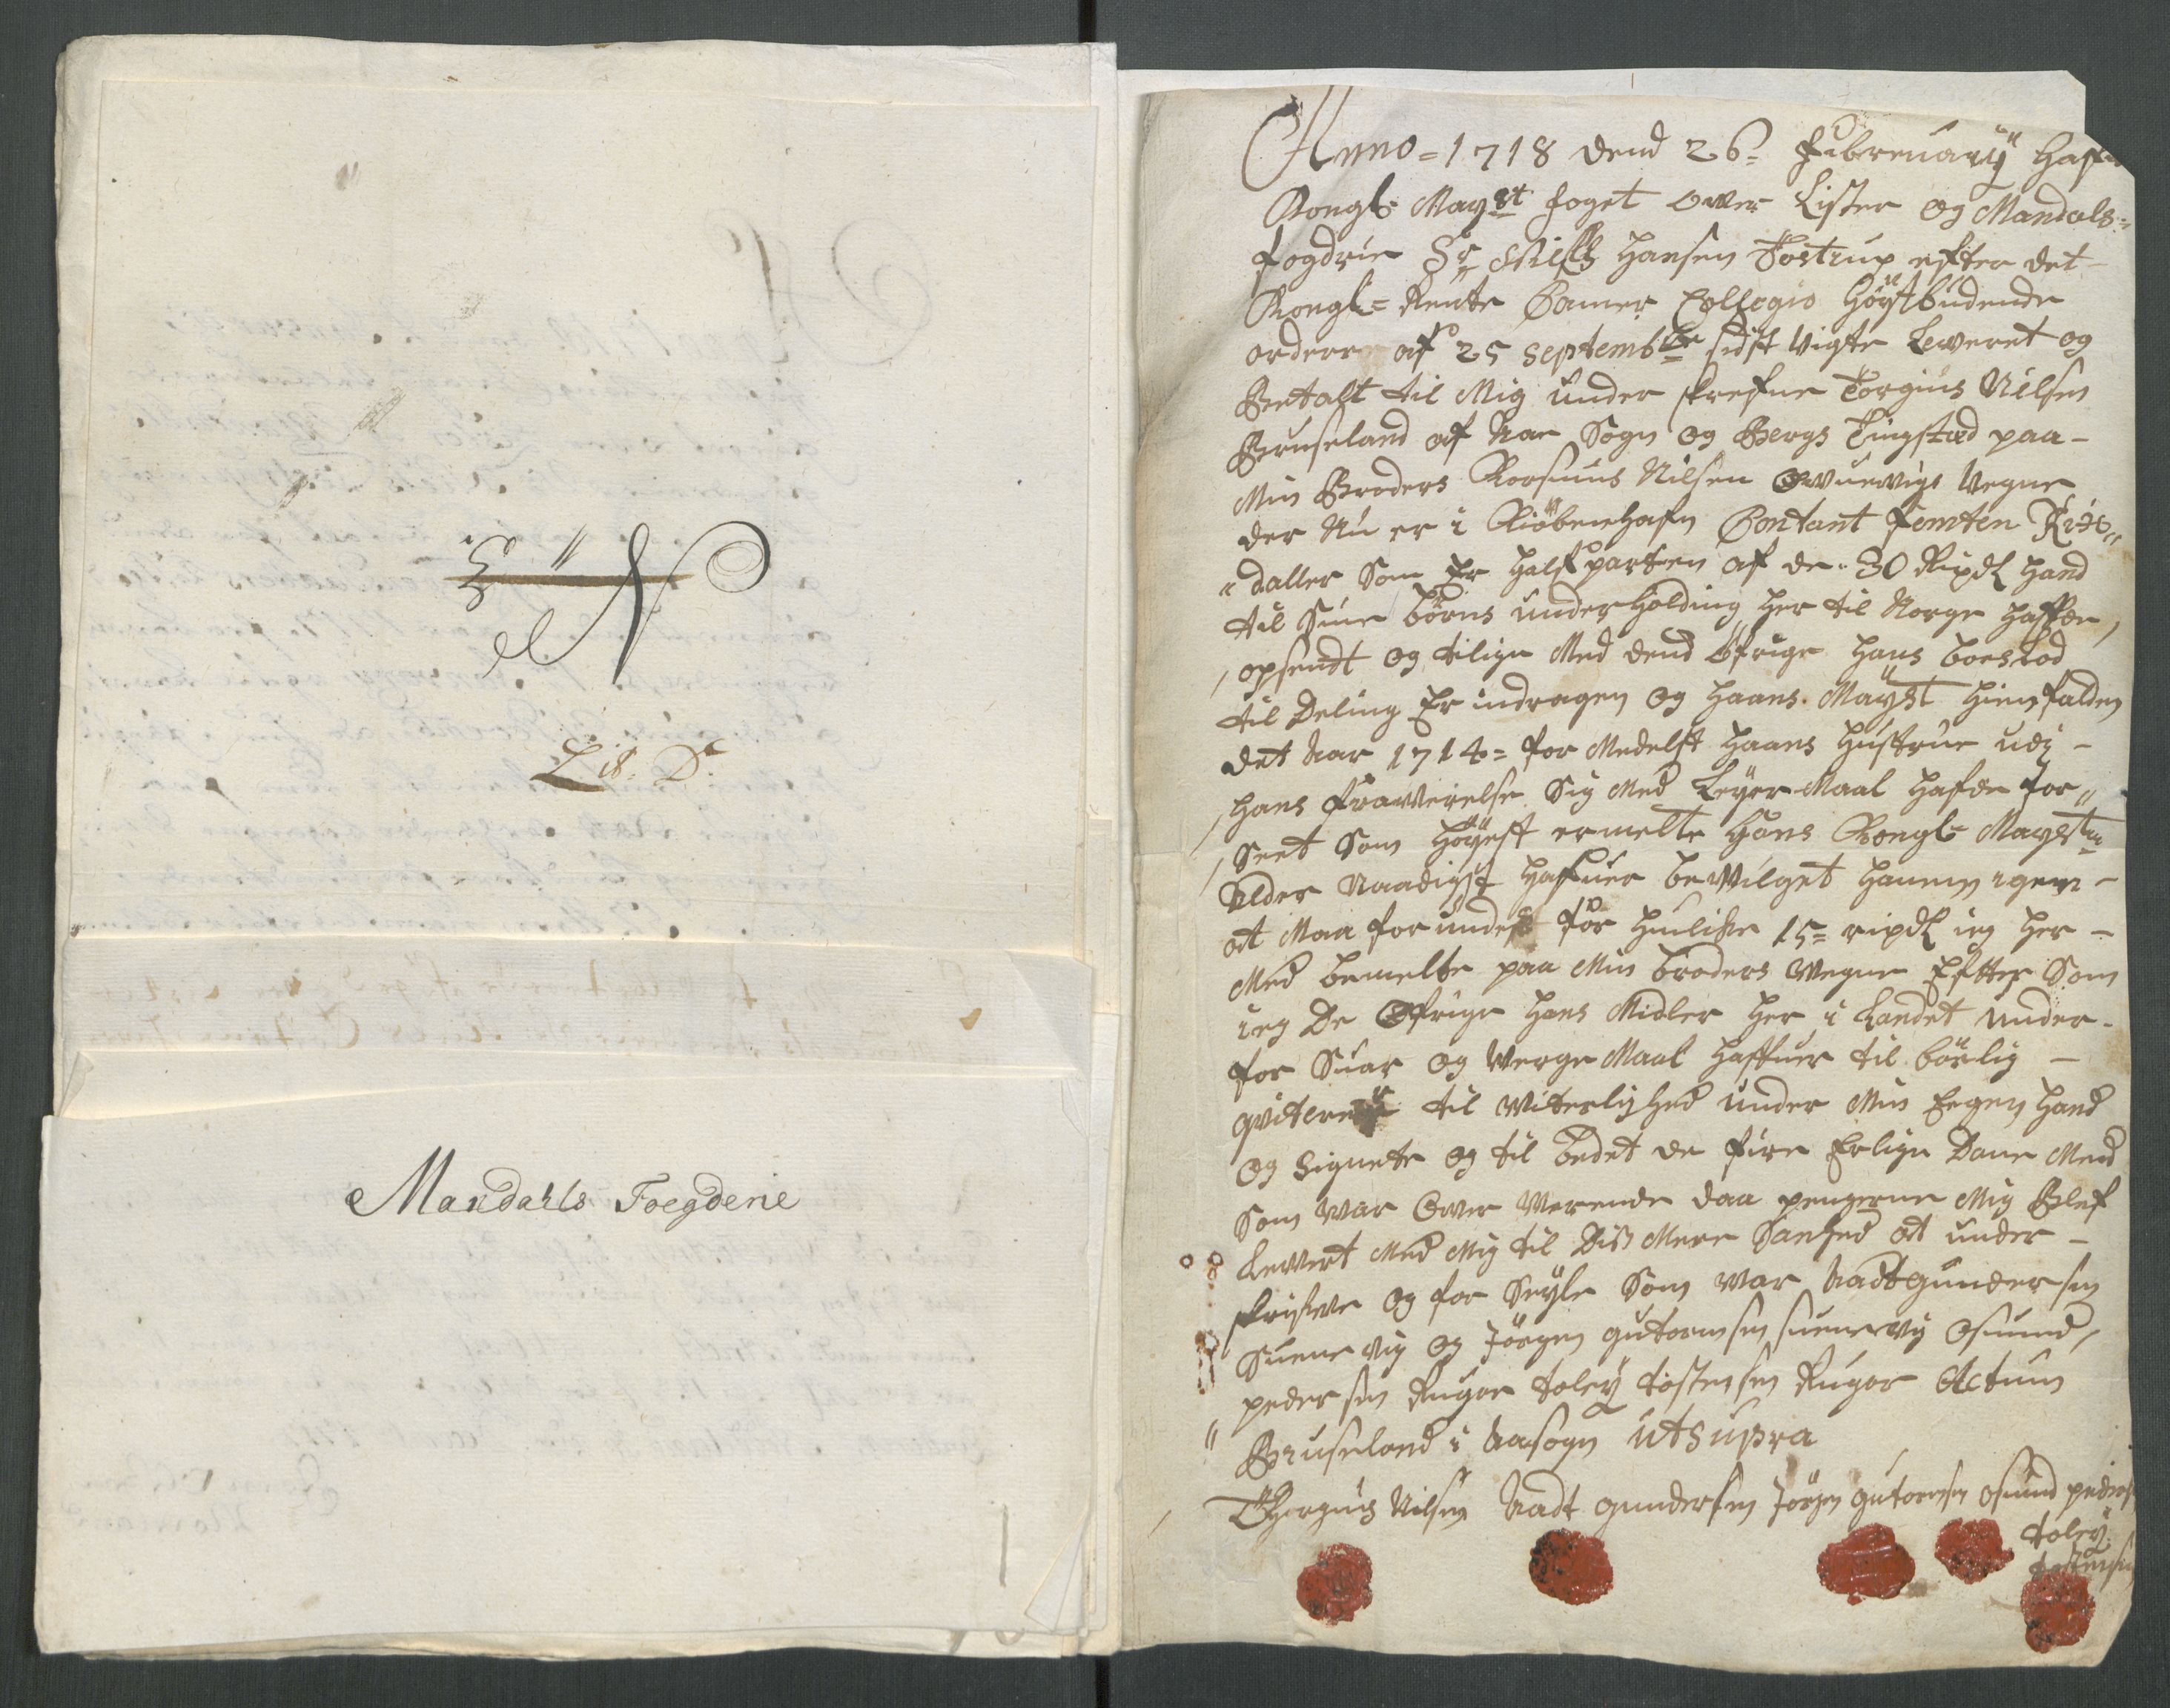 N
Lit. D.
Mandahls Foegderie
Anno = 1718 dend 26= Februarij Hafr
Kongl: Mayst foget over Lister og Mandals=
fogdrie Sr Nilss Hansen Tostrup efter det
Kongl= Rente Camer Collegio höystbüdende
ordere af 25 septembr sidst leweret og
Betalt til Mig under skrefne Torgius Nilsen
Bruseland af Aae Sogn og Bergs Tingsted paa
Min Broders Rasmus Nilsen vegne
der Nu er i Kiöbenhafn Contant femten Rix=
daller som Er halfparten af de 30 Rixdl hand
til Sine börns underholding her til Norge hafde
opsendt og tilige Med dend öfrige hans boeslod
til Deling Er indragen og haans Mayst hiemfalden
det Aar 1714= for Medelst haans hustrue udj
hans frawerelse Sig Med Leyer Maal hafde for
seet som höyest ermelte Hans Kongl= Mayst
Alder Naadigst hafuer bewilget hannem igien
at Maa forundes for huilke 15= rixdl ieg her
Med bemelte paa Min broders wegne Efter som
ieg De Ofrige hans Midler her i Landet under
for Suar og Werge Maal haffuer til börlig
qvitere til witerlighed under Min Eegen Hand
og Signete og til bedet de fire Erlige Dane Mend
som war Over Werende daa pengerne Mig Blef
Lewert Med Mig til Diss Mere Sanhed at under
skrifwe og for Seyle som war Aadt gundersen
Suenevig og Jörgen gutormsen suenevig Osmund
pedersen Rugor toley tostensen Rugor Actum
Bruseland i Aasogn ut supra
Thorgius Nilsen Aadt gundersen Jörgen gutormsen Osmund peders
toley
tostensen